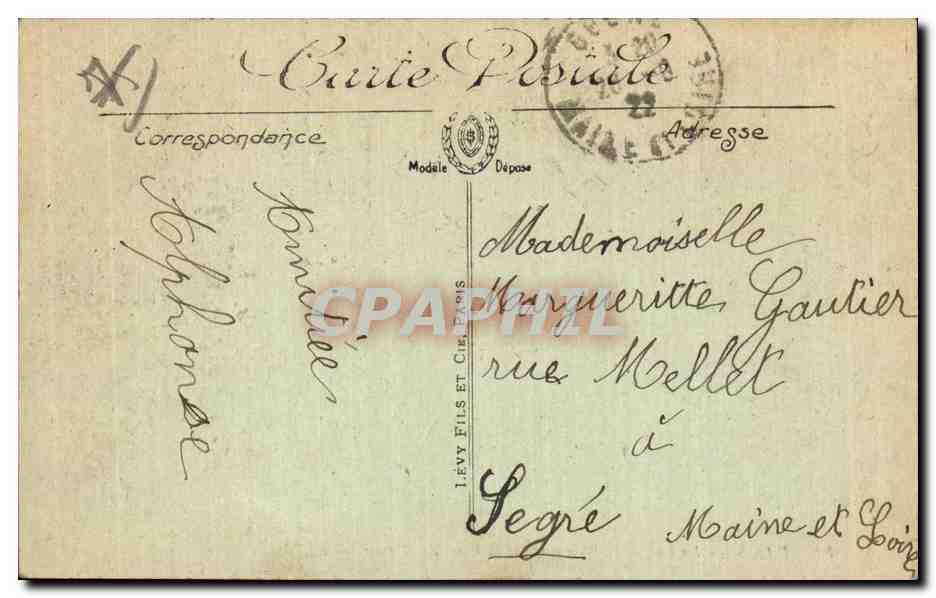 Carte Postale
Correspondance
Adresse
Modèle Déposé
22
MAINE ET LOIRE
Amitiées
Alphonse
LEVY FILS ET CIE, PARIS
CPAPHIL
Mademoiselle
Margueritte Gautier
rue Mellet
à
Segré
Maine et Loire